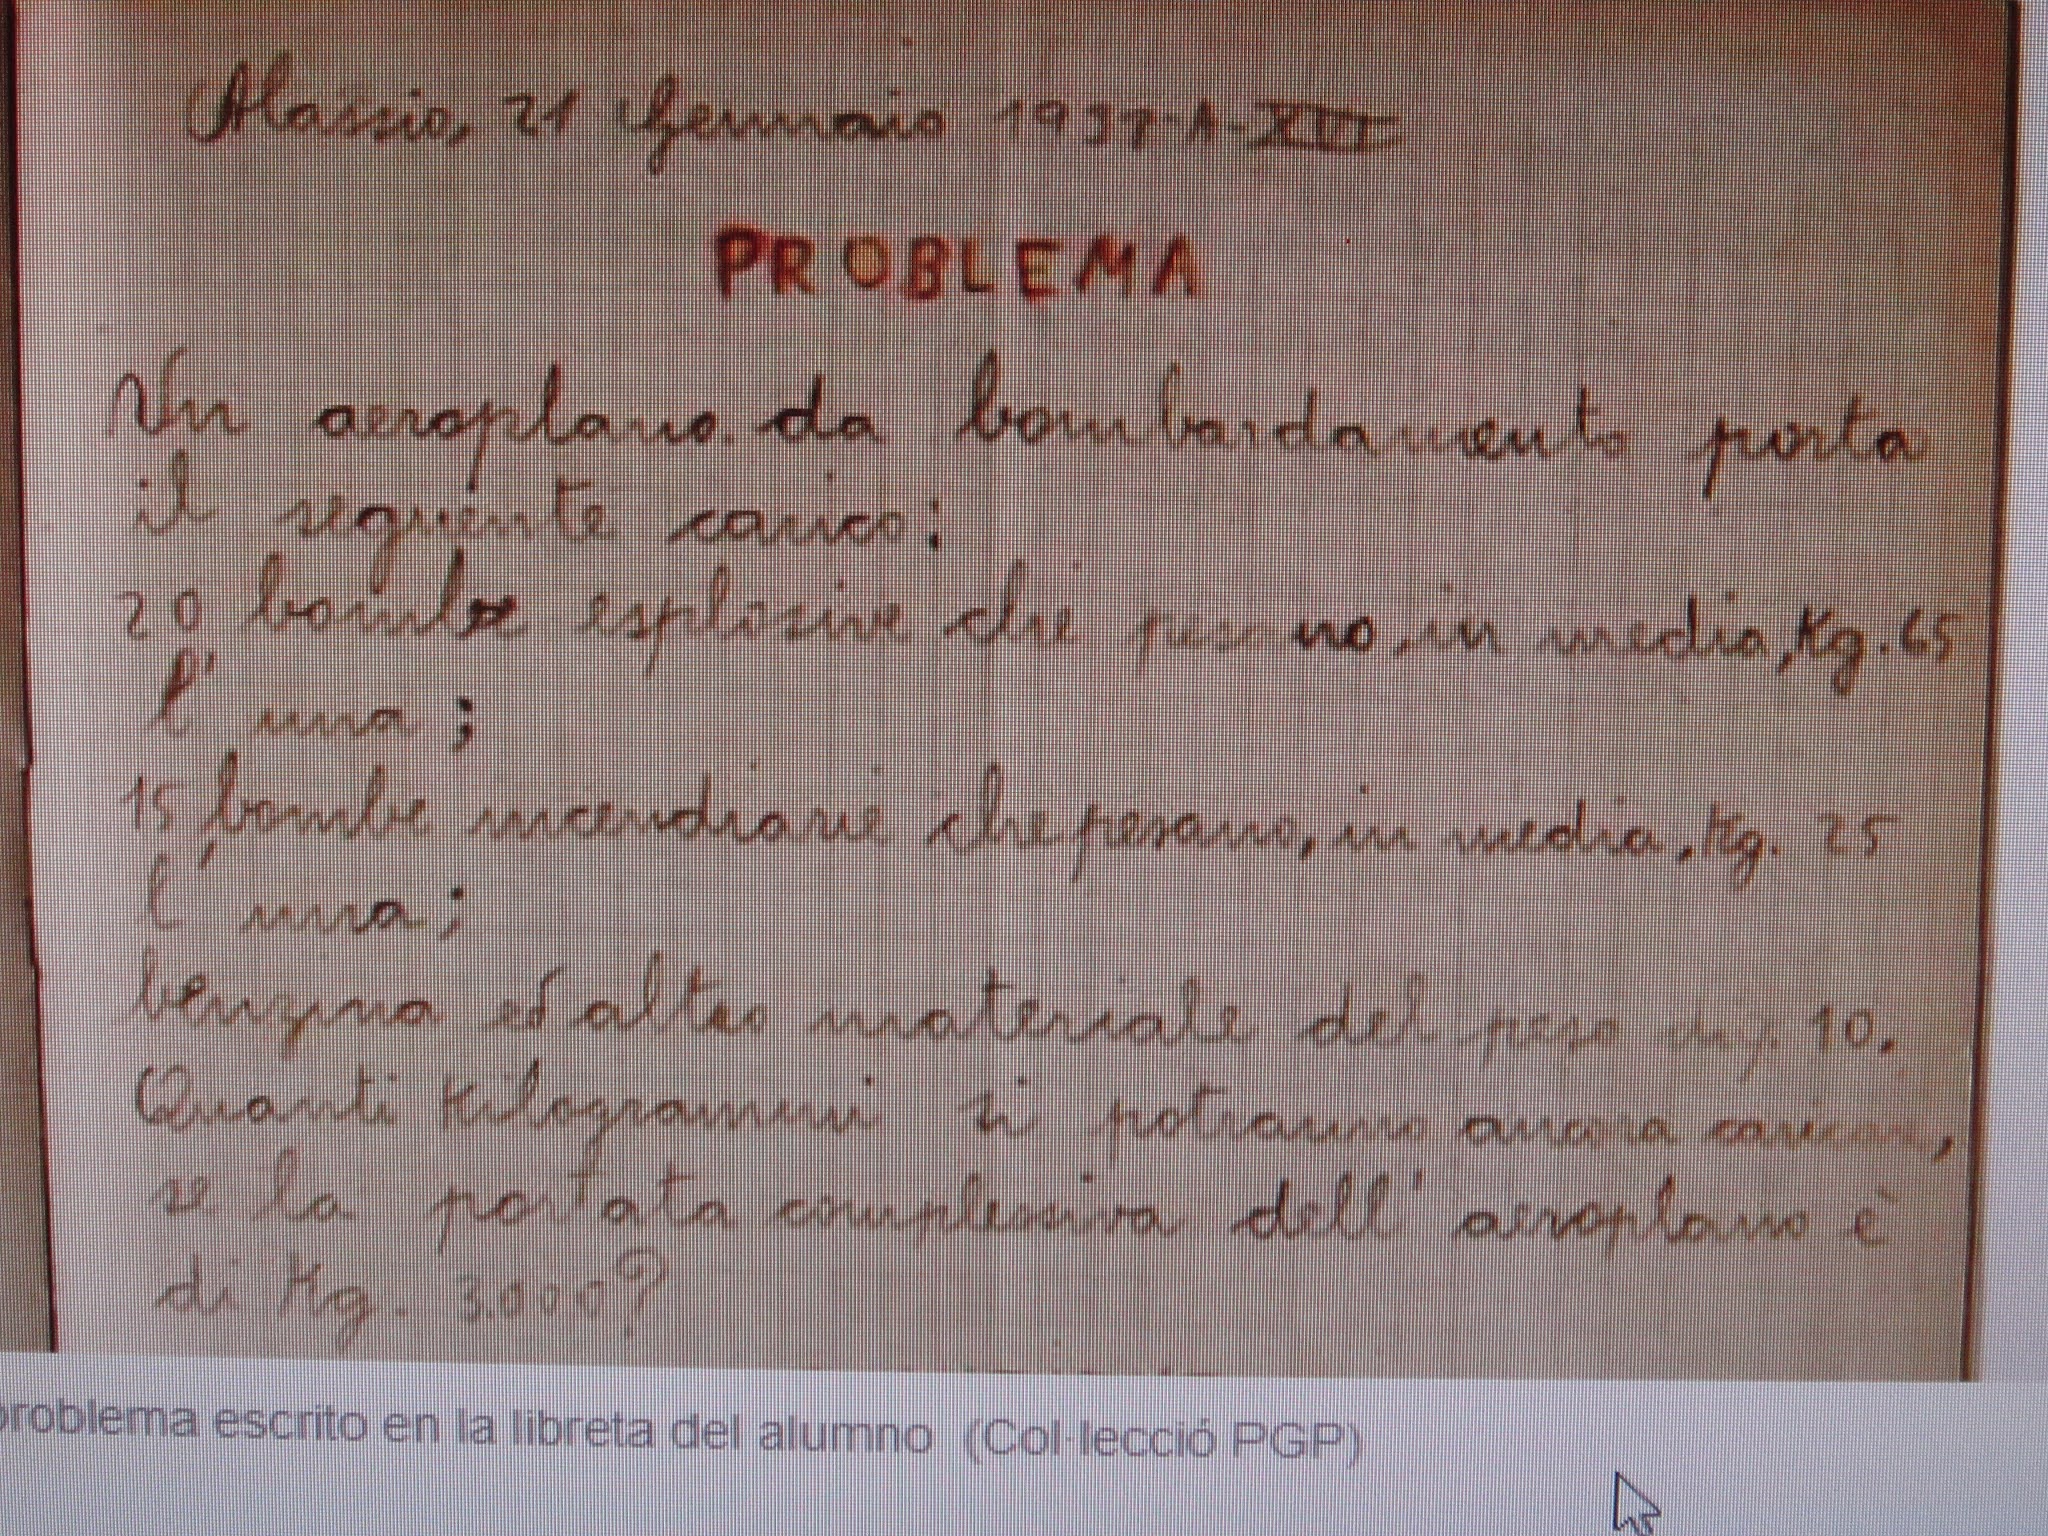 Alassio, 21 Gennaio 1937-A-XVI
PROBLEMA
Un aeroplano da bombardamento porta
il seguente carico:
20 bombe esplosive che pesano, in media, Kg. 65
l'una;
15 bombe incendiarie che pesano, in media, Kg. 25
l'una;
benzina ed altro materiale del peso 10.
Quanti Kilogrammi si potranno ancora caricare,
se la portata complessiva dell'aeroplano è
di Kg. 3.000?
problema escrito en la libreta del alumno (Col·lecció PGP)